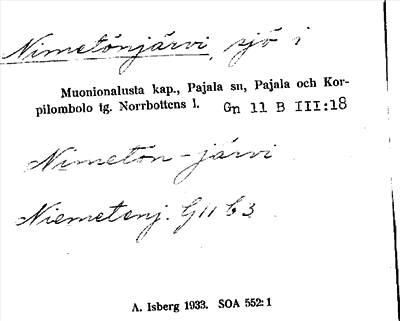 Nimetönjärvi, sjö i
Muonionalusta kap., Pajala sn, Pajala och Kor-
pilombolo tg. Norrbottens l. Gn 11 B III:18
Nimetön-järvi
Niemetenj. G11 b3
A. Isberg 1933. SOA 552:1